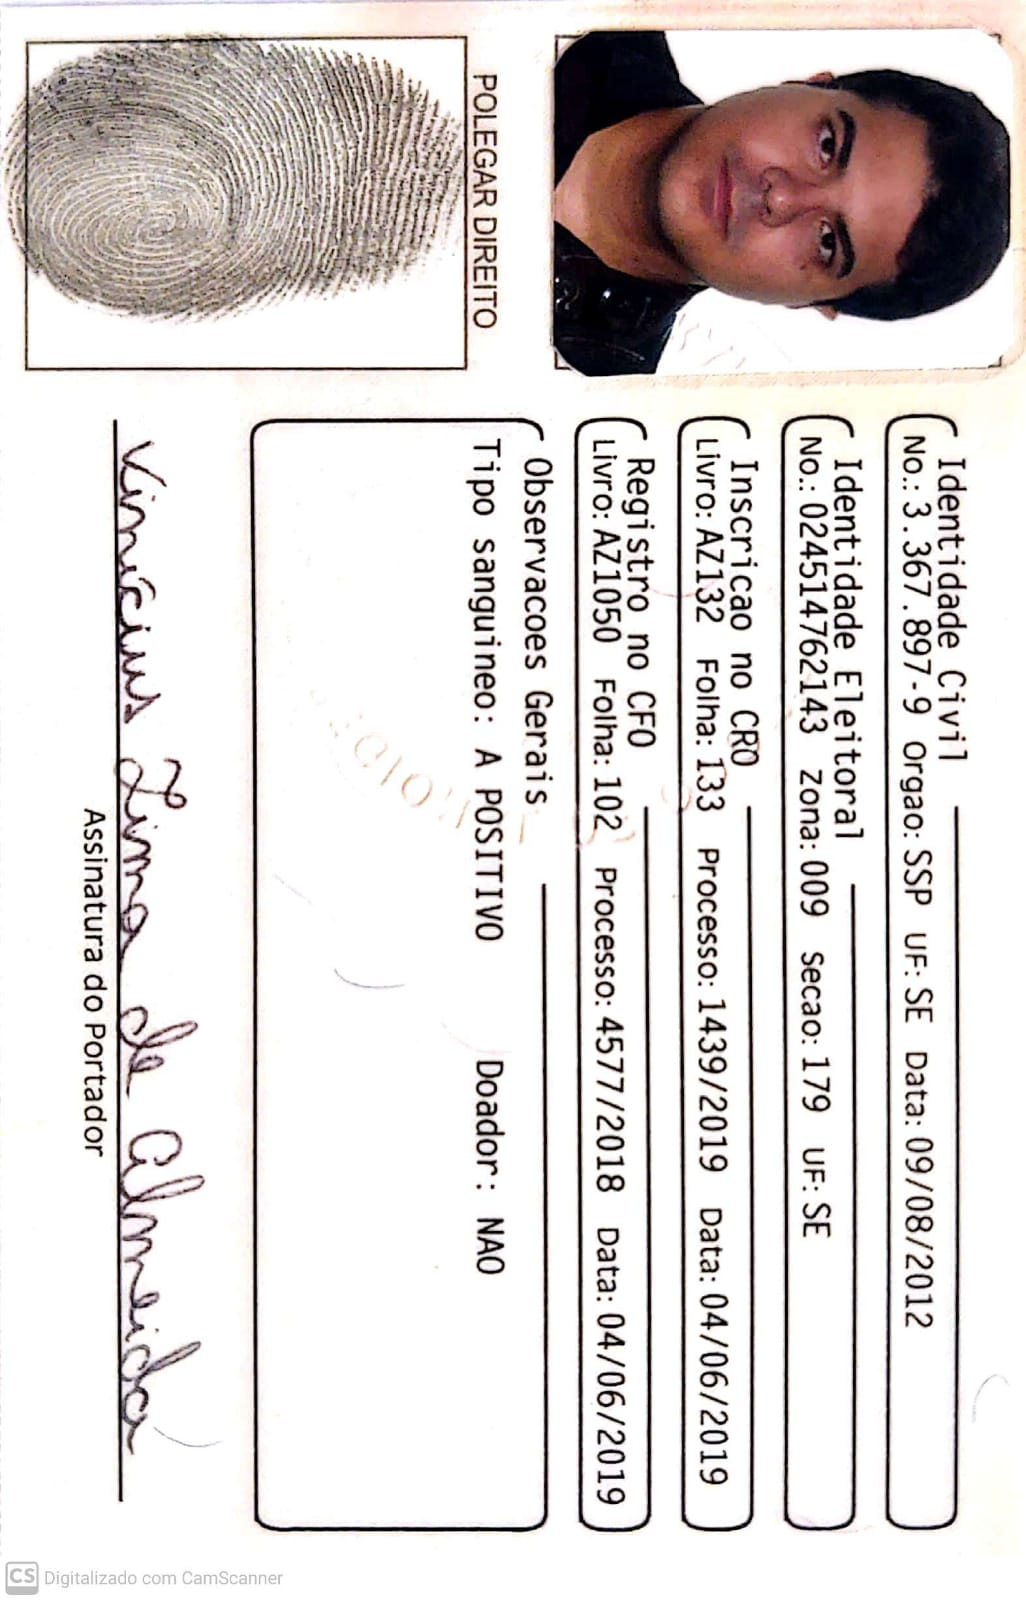 Identidade Civil
No.: 3.367.897-9 Orgao: SSP UF: SE Data: 09/08/2012
Identidade Eleitoral
No.: 024514762143 Zona: 009 Secao: 179 UF: SE
Inscricao no CRO
Livro: AZ132 Folha: 133 Processo: 1439/2019 Data: 04/06/2019
Registro no CFO
Livro: AZ1050 Folha: 102 Processo: 4577/2018 Data: 04/06/2019
Observacoes Gerais
Tipo sanguineo: A POSITIVO Doador: NAO
POLEGAR DIREITO
Vinícius Lima de Almeida
Assinatura do Portador
CS Digitalizado com CamScanner